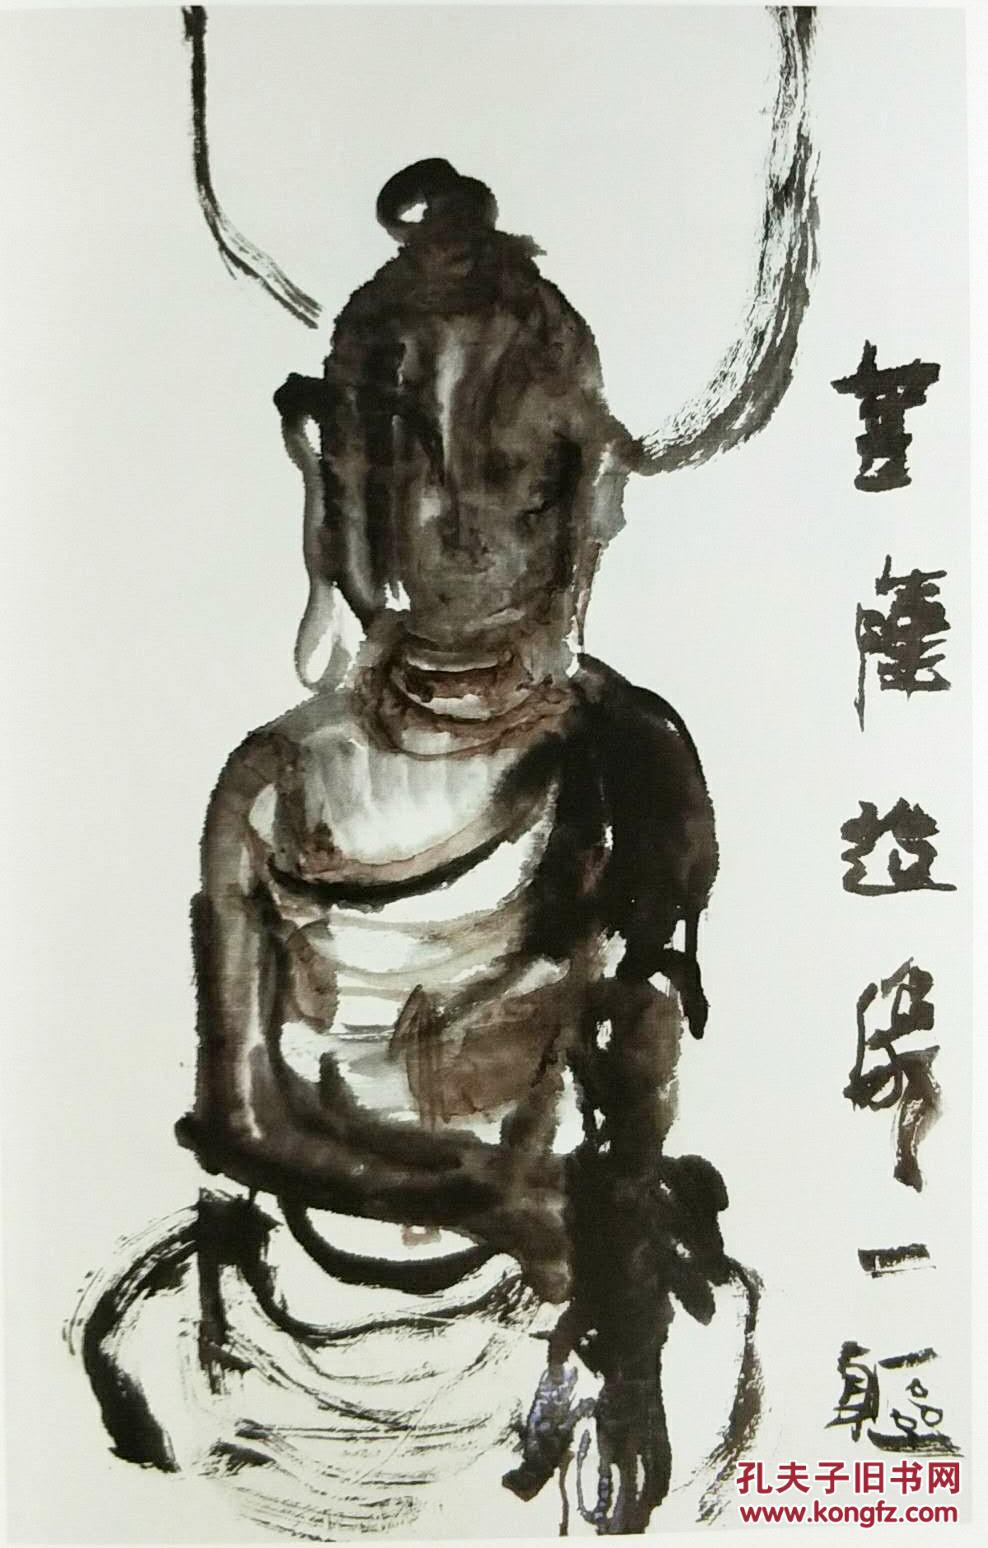 菩薩造像一軀
孔夫子旧书网
www.kongfz.com